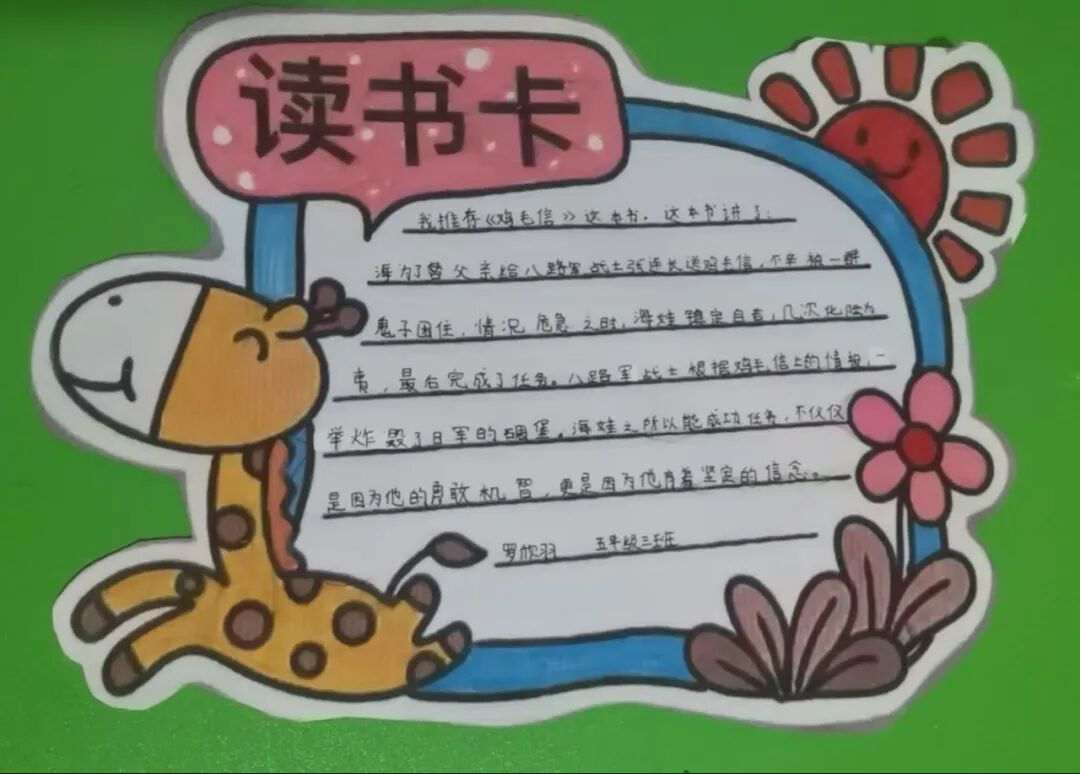 读书卡
我推荐《鸡毛信》这本书。这本书讲了:
海为了替父亲给八路军战士张连长送鸡毛信,不幸被一群
鬼子困住,情况危急之时,海娃镇定自若,几次化险为
夷,最后完成了任务。八路军战士根据鸡毛信上的情报,一
举炸毁了日军的碉堡。海娃之所以能成功任务,不仅仅
是因为他的勇敢机智,更是因为他有着坚定的信念。
罗欣羽 五年级三班